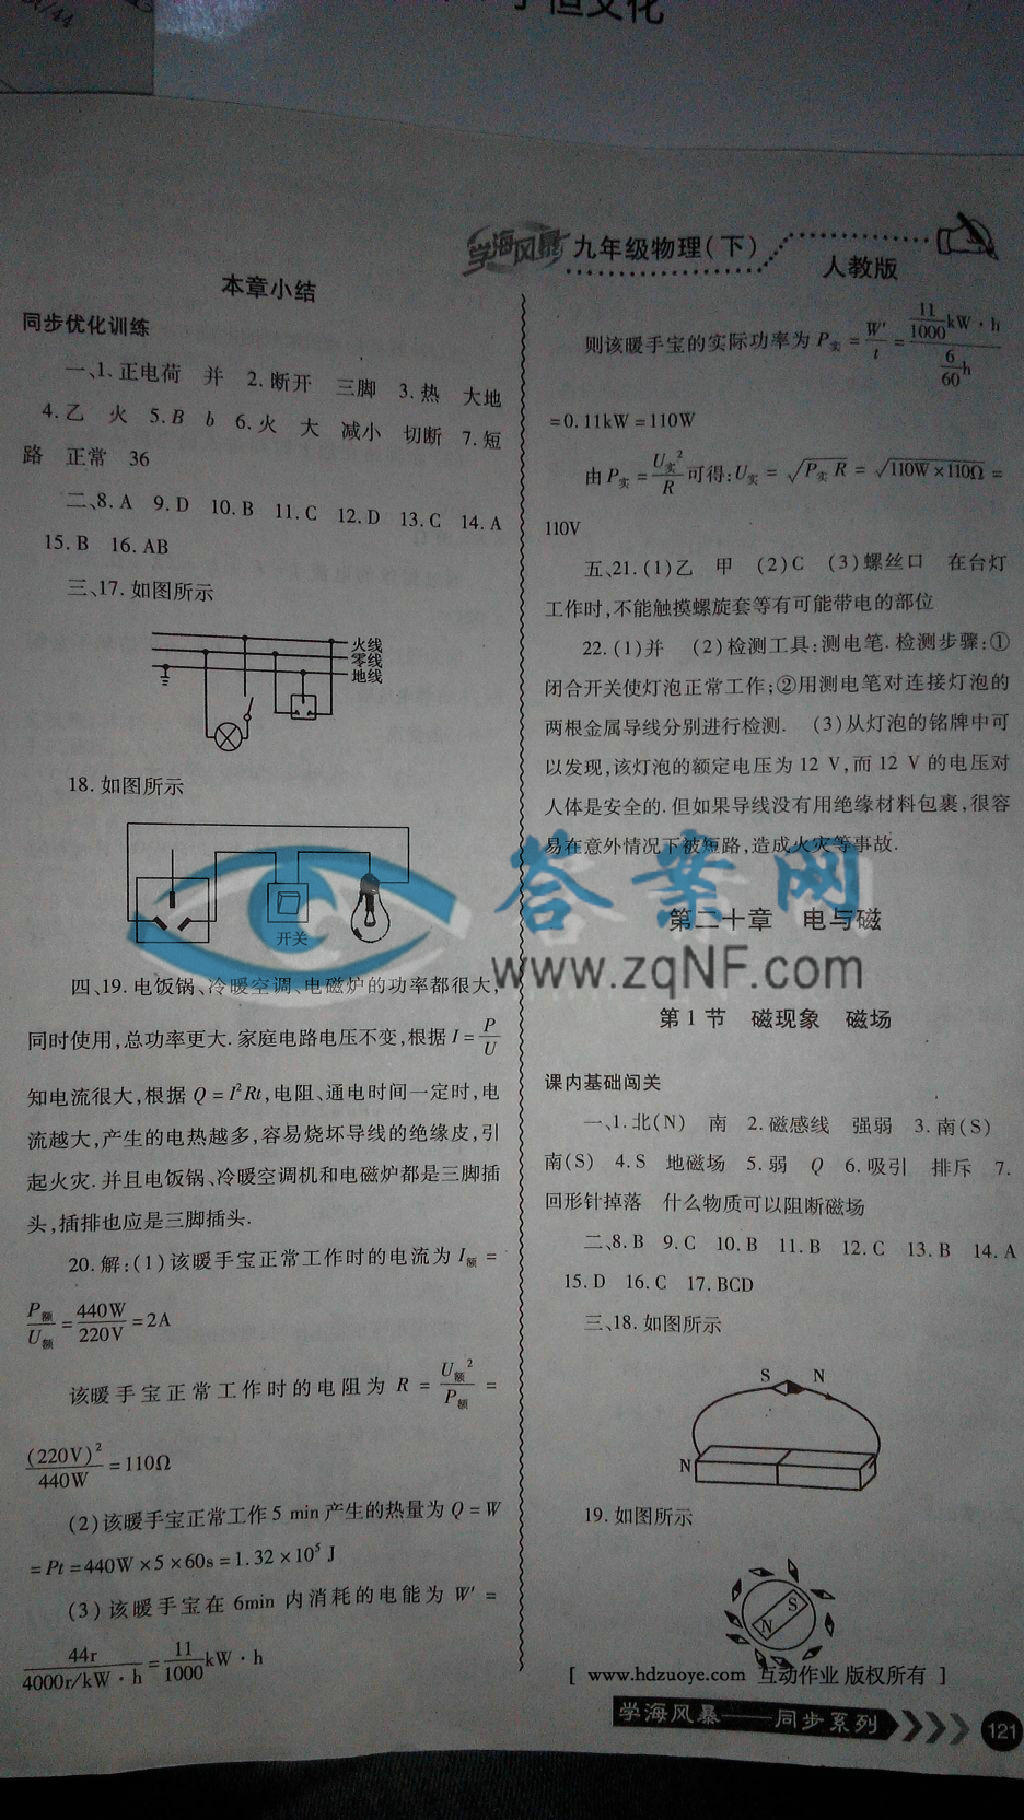 恒文化
学海风暴 九年级物理(下)
人教版
本章小结
同步优化训练
一、1.正电荷 并 2.断开 三脚 3.热 大地
4.乙 火 5.B b 6.火 大 减小 切断 7.短
路 正常 36
二、8.A 9.D 10.B 11.C 12.D 13.C 14.A
15.B 16.AB
三、17.如图所示
火线
零线
地线
18.如图所示
开关
四、19.电饭锅、冷暖空调、电磁炉的功率都很大,
同时使用,总功率更大.家庭电路电压不变,根据 I=P/U
知电流很大,根据 Q=I²Rt,电阻、通电时间一定时,电
流越大,产生的电热越多,容易烧坏导线的绝缘皮,引
起火灾.并且电饭锅、冷暖空调机和电磁炉都是三脚插
头,插排也应是三脚插头.
20.解:(1)该暖手宝正常工作时的电流为 I额=
P额/U额=440W/220V=2A
该暖手宝正常工作时的电阻为 R=U额²/P额=
(220V)²/440W=110Ω
(2)该暖手宝正常工作5 min产生的热量为 Q=W
=Pt=440W×5×60s=1.32×10⁵ J
(3)该暖手宝在6min内消耗的电能为 W′=
44r/4000r/kW·h=11/1000kW·h
则该暖手宝的实际功率为 P实=W′/t=11/1000kW·h/6/60h
=0.11kW=110W
由 P实=U实²/R可得:U实=√P实R=√110W×110Ω=
110V
五、21.(1)乙 甲 (2)C (3)螺丝口 在台灯
工作时,不能触摸螺旋套等有可能带电的部位
22.(1)并 (2)检测工具:测电笔.检测步骤:①
闭合开关使灯泡正常工作;②用测电笔对连接灯泡的
两根金属导线分别进行检测. (3)从灯泡的铭牌中可
以发现,该灯泡的额定电压为12 V,而12 V的电压对
人体是安全的.但如果导线没有用绝缘材料包裹,很容
易在意外情况下被短路,造成火灾等事故.
答案网
www.zqNF.com
第二十章 电与磁
第1节 磁现象 磁场
课内基础闯关
一、1.北(N) 南 2.磁感线 强弱 3.南(S)
南(S) 4.S 地磁场 5.弱 Q 6.吸引 排斥 7.
回形针掉落 什么物质可以阻断磁场
二、8.B 9.C 10.B 11.B 12.C 13.B 14.A
15.D 16.C 17.BCD
三、18.如图所示
S N
N
19.如图所示
S
N
[ www.hdzuoye.com 互动作业 版权所有 ]
学海风暴——同步系列 121